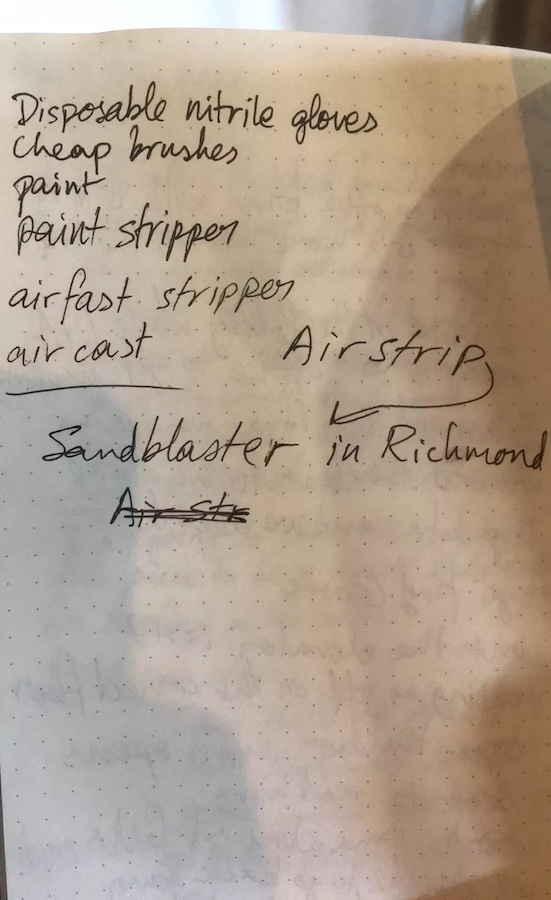 Disposable nitrile gloves
cheap brushes
paint
paint stripper
airfast stripper
air cast
Airstrip
Sandblaster in Richmond
Air Str